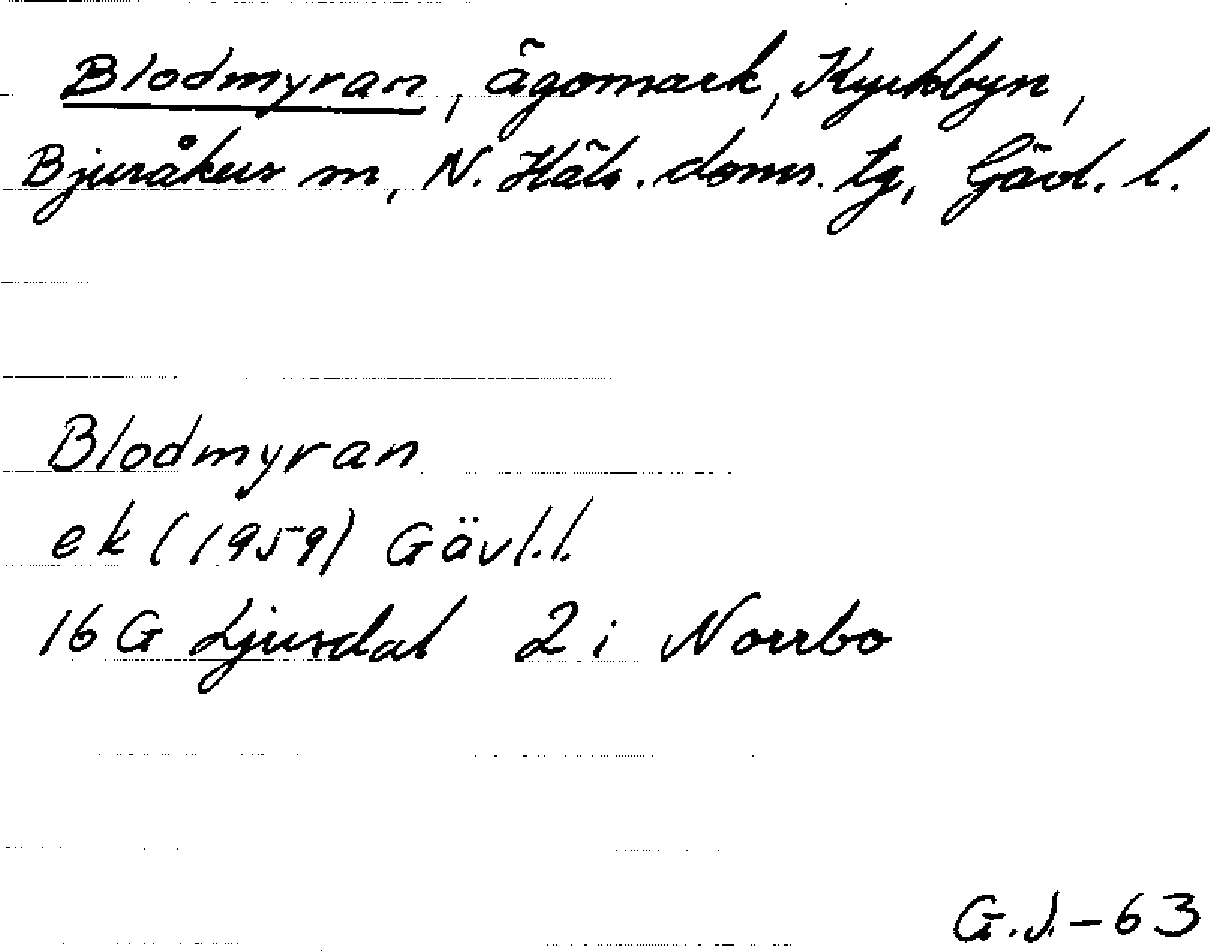 Blodmyran, ägomark, Kyrkbyn,
Bjuråkers sn, N. Häls. doms. tg, Gävl. l.
Blodmyran
ek (1959) Gävl.l.
16 G Ljusdal 2 i Norrbo
G.J.-63